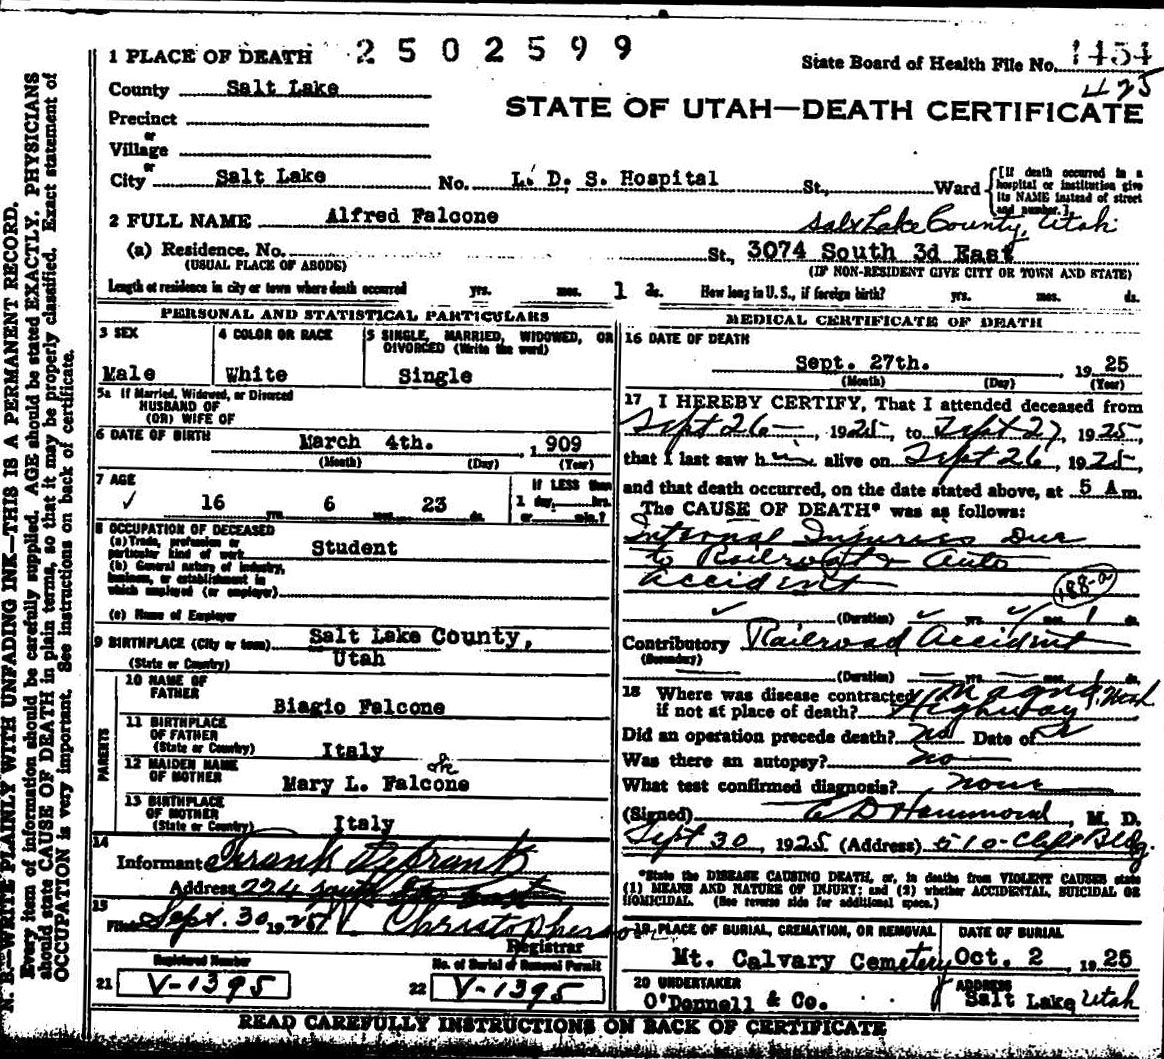 1 PLACE OF DEATH 2502599
State Board of Health File No. 1454
425
County Salt Lake
STATE OF UTAH—DEATH CERTIFICATE
Precinct
or
Village
or
City Salt Lake No. L. D. S. Hospital St., Ward
[If death occurred in a
hospital or institution give
its NAME instead of street
and number.]
2 FULL NAME Alfred Falcone
Salt Lake County, Utah
(a) Residence. No. St., 3074 South 3d East
(USUAL PLACE OF ABODE) (IF NON-RESIDENT GIVE CITY OR TOWN AND STATE)
Length of residence in city or town where death occurred yrs. mos. 1 ds. How long in U. S., if foreign birth? yrs. mos. ds.
PERSONAL AND STATISTICAL PARTICULARS
3 SEX
Male
4 COLOR OR RACE
White
5 SINGLE, MARRIED, WIDOWED, OR
DIVORCED (Write the word)
Single
5a If Married, Widowed, or Divorced
HUSBAND OF
(OR) WIFE OF
6 DATE OF BIRTH March 4th. 1909
(Month) (Day) (Year)
7 AGE
16 yrs. 6 mos. 23 ds.
If LESS than
1 day, hrs.
or min.?
8 OCCUPATION OF DECEASED
(a) Trade, profession or
particular kind of work Student
(b) General nature of industry,
business, or establishment in
which employed (or employer)
(c) Name of Employer
9 BIRTHPLACE (City or town) Salt Lake County,
(State or Country) Utah
PARENTS
10 NAME OF
FATHER Biagio Falcone
11 BIRTHPLACE
OF FATHER
(State or Country) Italy
12 MAIDEN NAME
OF MOTHER Mary L. Falcone
ok
13 BIRTHPLACE
OF MOTHER
(State or Country) Italy
14
Informant Frank DeFrank
Address 224 South
15
Filed Sept. 30 1925 V. Christopherson
Registrar
Registered Number
21 V-1395
No. of Burial or Removal Permit
22 V-1395
MEDICAL CERTIFICATE OF DEATH
16 DATE OF DEATH
Sept. 27th. 1925
(Month) (Day) (Year)
17 I HEREBY CERTIFY, That I attended deceased from
Sept 26, 1925, to Sept 27, 1925,
that I last saw him alive on Sept 26, 1925,
and that death occurred, on the date stated above, at 5 A m.
The CAUSE OF DEATH* was as follows:
Internal Injuries Due
to Railroad & Auto
accident
188-a
(Duration) yrs. mos. 1 ds.
Contributory Railroad Accident
(Secondary)
(Duration) yrs. mos. ds.
18 Where was disease contracted Magna, Utah
if not at place of death? Highway
Did an operation precede death? No Date of
Was there an autopsy? no
What test confirmed diagnosis? none
(Signed) E D Hammond, M. D.
Sept 30, 1925 (Address) 510 Clift Bldg.
*State the DISEASE CAUSING DEATH, or, in deaths from VIOLENT CAUSES state
(1) MEANS AND NATURE OF INJURY; and (2) whether ACCIDENTAL, SUICIDAL OR
HOMICIDAL. (See reverse side for additional space.)
19 PLACE OF BURIAL, CREMATION, OR REMOVAL
Mt. Calvary Cemetery
DATE OF BURIAL
Oct. 2, 1925
20 UNDERTAKER
O'Donnell & Co.
ADDRESS
Salt Lake Utah
READ CAREFULLY INSTRUCTIONS ON BACK OF CERTIFICATE
N. B.—WRITE PLAINLY WITH UNFADING INK—THIS IS A PERMANENT RECORD.
Every item of information should be carefully supplied. AGE should be stated EXACTLY. PHYSICIANS
should state CAUSE OF DEATH in plain terms, so that it may be properly classified. Exact statement of
OCCUPATION is very important. See instructions on back of certificate.